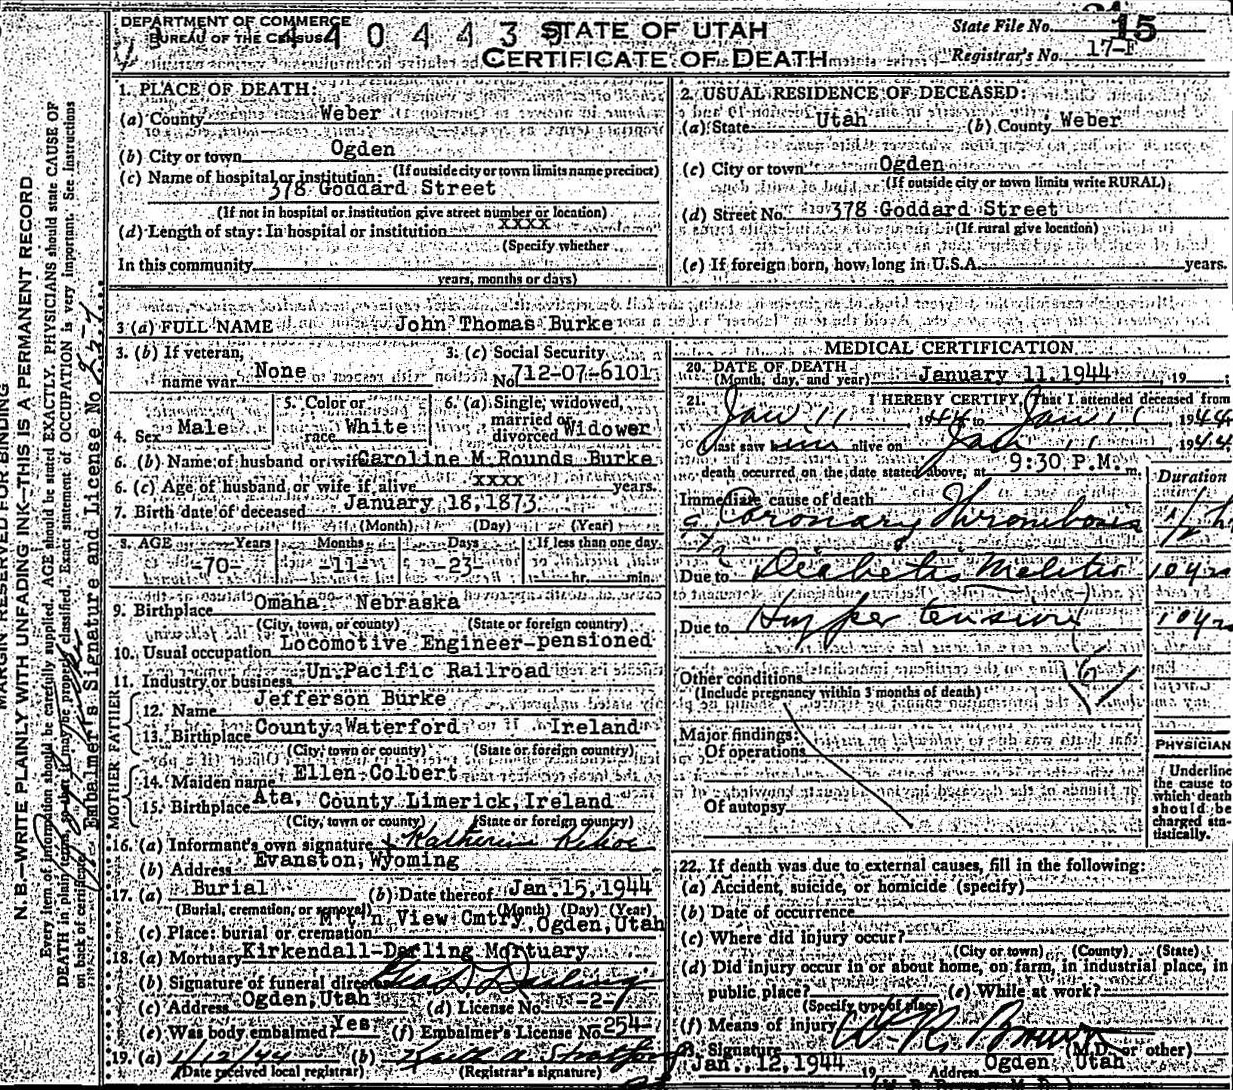 DEPARTMENT OF COMMERCE
BUREAU OF THE CENSUS
440443
STATE OF UTAH
CERTIFICATE OF DEATH
State File No. 15
Registrar's No. 17-F
1. PLACE OF DEATH:
(a) County Weber
(b) City or town Ogden
(If outside city or town limits name precinct)
(c) Name of hospital or institution:
378 Goddard Street
(If not in hospital or institution give street number or location)
(d) Length of stay: In hospital or institution xxxx
(Specify whether
In this community
years, months or days)
2. USUAL RESIDENCE OF DECEASED:
(a) State Utah (b) County Weber
(c) City or town Ogden
(If outside city or town limits write RURAL)
(d) Street No. 378 Goddard Street
(If rural give location)
(e) If foreign born, how long in U.S.A. years.
3 (a) FULL NAME John Thomas Burke
3. (b) If veteran, name war None
3. (c) Social Security No. 712-07-6101
4. Sex Male
5. Color or race White
6. (a) Single, widowed, married or divorced Widower
6. (b) Name of husband or wife Caroline M Rounds Burke
6. (c) Age of husband or wife if alive xxxx years.
7. Birth date of deceased January 18, 1873
(Month) (Day) (Year)
8. AGE Years Months Days If less than one day
-70- -11- -23- hr. min.
9. Birthplace Omaha Nebraska
(City, town, or county) (State or foreign country)
10. Usual occupation Locomotive Engineer-pensioned
11. Industry or business Un Pacific Railroad
FATHER
12. Name Jefferson Burke
13. Birthplace County Waterford Ireland
(City, town or county) (State or foreign country)
MOTHER
14. Maiden name Ellen Colbert
15. Birthplace Ata, County Limerick, Ireland
(City, town or county) (State or foreign country)
16. (a) Informant's own signature Katherine Kehoe
(b) Address Evanston, Wyoming
17. (a) Burial (b) Date thereof Jan. 15, 1944
(Burial, cremation, or removal) (Month) (Day) (Year)
(c) Place: burial or cremation View Cmtry, Ogden, Utah
18. (a) Mortuary Kirkendall-Darling Mortuary
(b) Signature of funeral director Darling
(c) Address Ogden, Utah (d) License No. -2-
(e) Was body embalmed? Yes (f) Embalmer's License No. 254-
19. (a) 1/12/44 (b)
(Date received local registrar) (Registrar's signature)
MEDICAL CERTIFICATION
20. DATE OF DEATH
(Month, day, and year) January 11, 1944, 19
21. I HEREBY CERTIFY, That I attended deceased from
Jan 11 1944 to Jan 11, 1944
last saw him alive on Jan 11 1944
death occurred on the date stated above, at 9:30 P.M. m.
Duration
Immediate cause of death
Coronary Thrombosis 1/2 hr
Due to Diabetis Melitis 10 yrs
Due to Hypertension 10 yrs
Other conditions
(Include pregnancy within 3 months of death)
Major findings:
Of operations
Of autopsy
PHYSICIAN
Underline
the cause to
which death
should be
charged sta-
tistically.
22. If death was due to external causes, fill in the following:
(a) Accident, suicide, or homicide (specify)
(b) Date of occurrence
(c) Where did injury occur?
(City or town) (County) (State)
(d) Did injury occur in or about home, on farm, in industrial place, in
public place? (e) While at work?
(Specify type of place)
(f) Means of injury
Signature W. R. Brown (M.D. or other)
Jan. 12, 1944 19 Address Ogden, Utah
MARGIN RESERVED FOR BINDING
N. B.—WRITE PLAINLY WITH UNFADING INK—THIS IS A PERMANENT RECORD
Every item of information should be carefully supplied. AGE should be stated EXACTLY. PHYSICIANS should state CAUSE OF
DEATH in plain terms, so that it may be properly classified. Exact statement of OCCUPATION is very important. See instructions
on back of certificate.
Embalmer's Signature and License No.